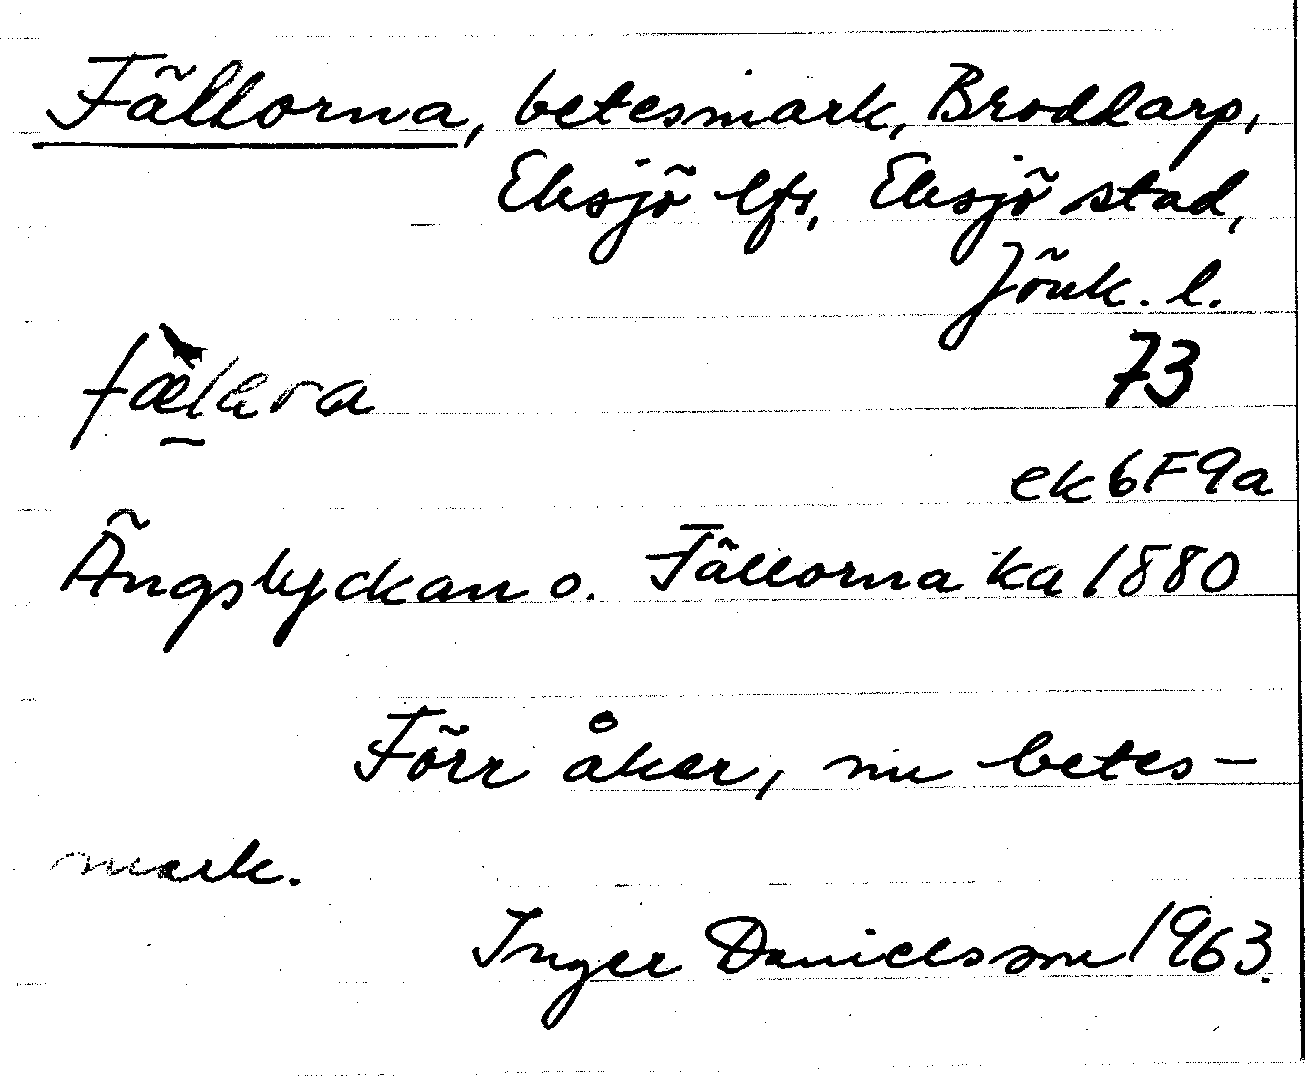 Fällorna, betesmark, Broddarp,
Eksjö lfs, Eksjö stad,
Jönk. l.
fæ̀l̠ara 73
ek 6F9a
Ängslyckan o. Fällorna ka 1880
Förr åker, nu betes-
mark.
Inger Danielsson 1963.